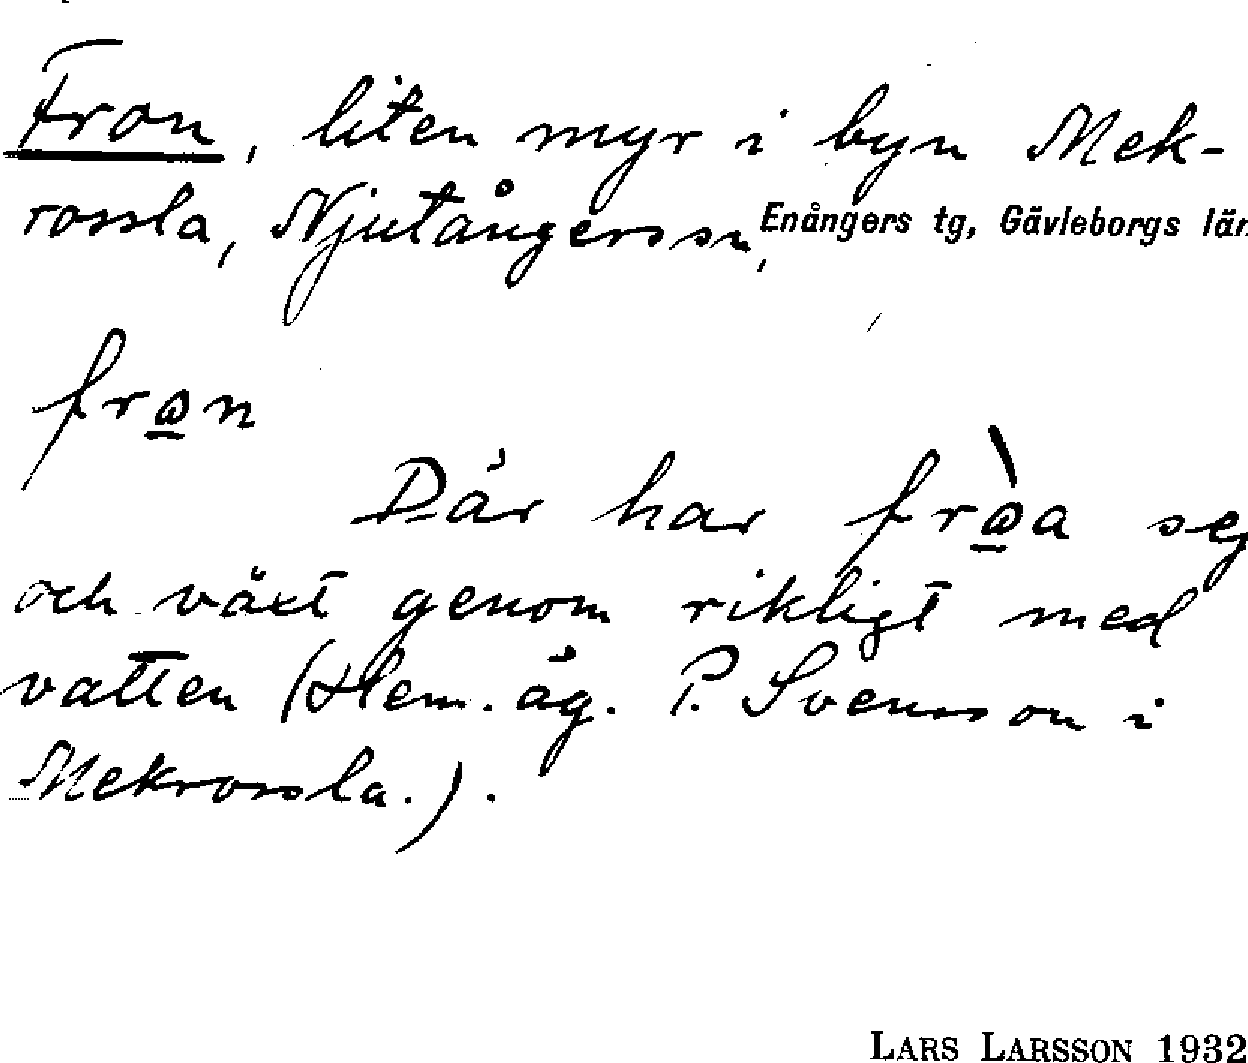 Fron, liten myr i byn Mek-
rossla, Njutångers sn, Enångers tg, Gävleborgs län
frⱺn
Där har frⱺ̀a seg
och växt genom rikligt med
vatten (Hem.äg. P. Svensson i
Mekrossla.).
LARS LARSSON 1932